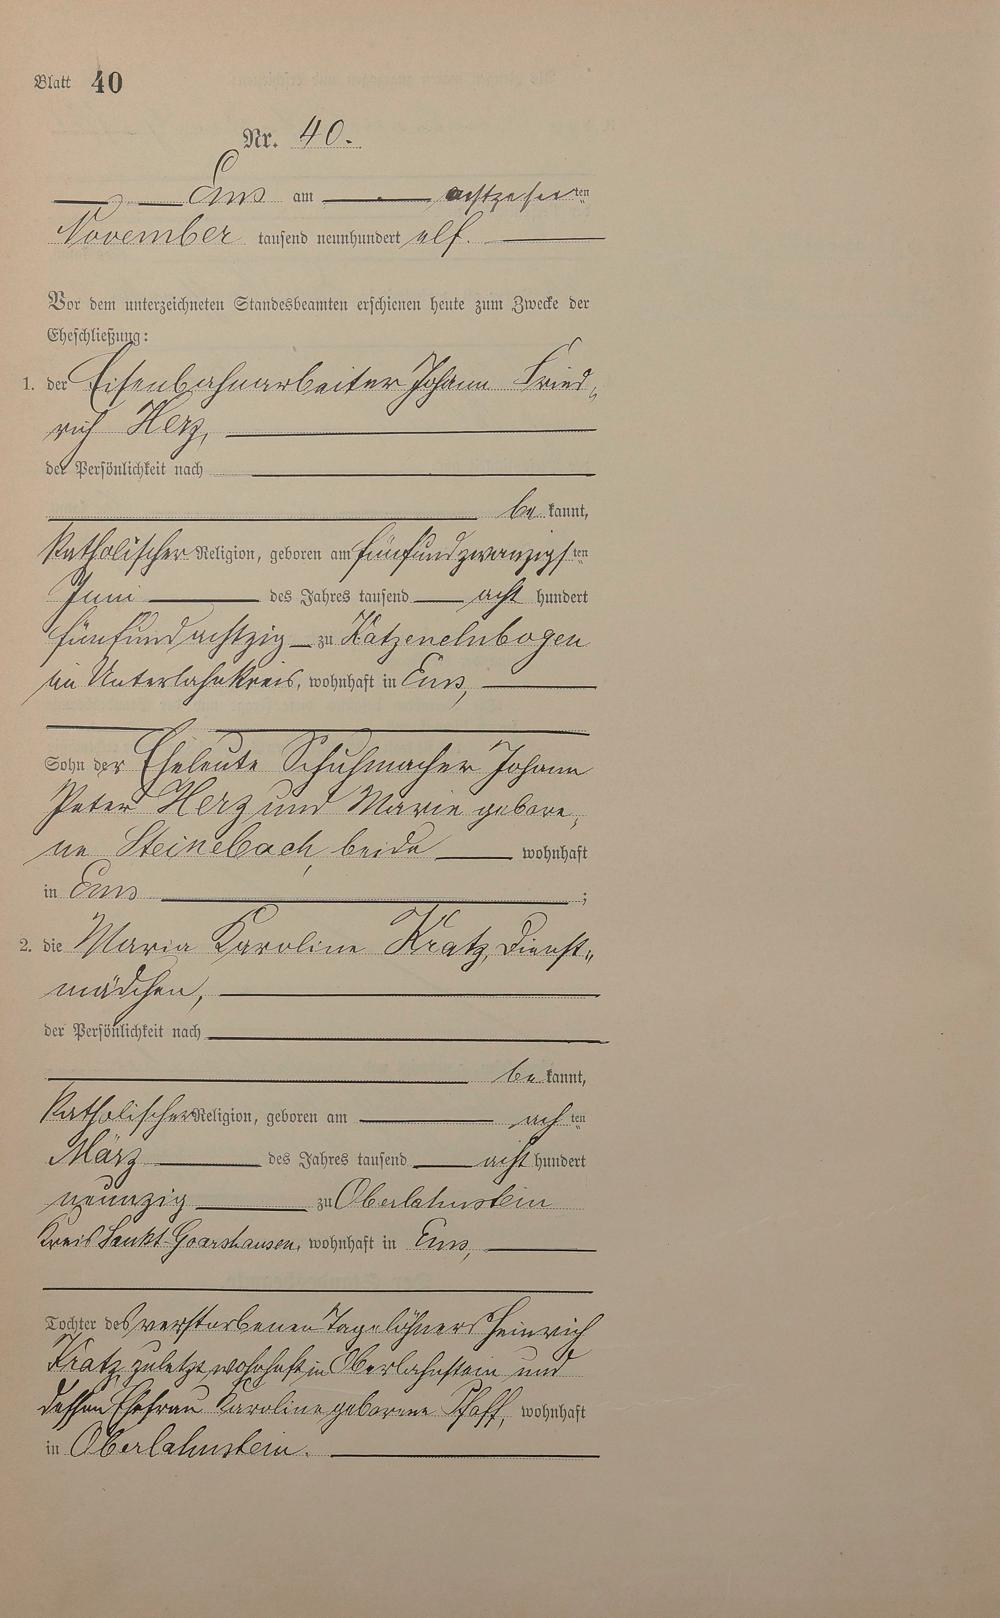 Blatt 40
Nr. 40.
Ems am achtzehnten
November tausend neunhundert elf.
Vor dem unterzeichneten Standesbeamten erschienen heute zum Zwecke der
Eheschließung:
1. der Eisenbahnarbeiter Johann Fried-
rich Herz,
der Persönlichkeit nach
be kannt,
katholischer Religion, geboren am fünfundzwanzigsten
Juni des Jahres tausend acht hundert
fünfundachtzig zu Katzenelnbogen
im Unterlahnkreis, wohnhaft in Ems,
Sohn der Eheleute Schuhmacher Johann
Peter Herz und Marie gebore-
ne Steinebach, beide wohnhaft
in Ems ;
2. die Maria Karoline Kratz, Dienst-
mädchen,
der Persönlichkeit nach
be kannt,
katholischer Religion, geboren am achten
März des Jahres tausend acht hundert
neunzig zu Oberlahnstein
Kreis Sankt Goarshausen, wohnhaft in Ems,
Tochter des verstorbenen Tagelöhners Heinrich
Kratz, zuletzt wohnhaft in Oberlahnstein und
dessen Ehefrau Karoline geborene Pfaff, wohnhaft
in Oberlahnstein.